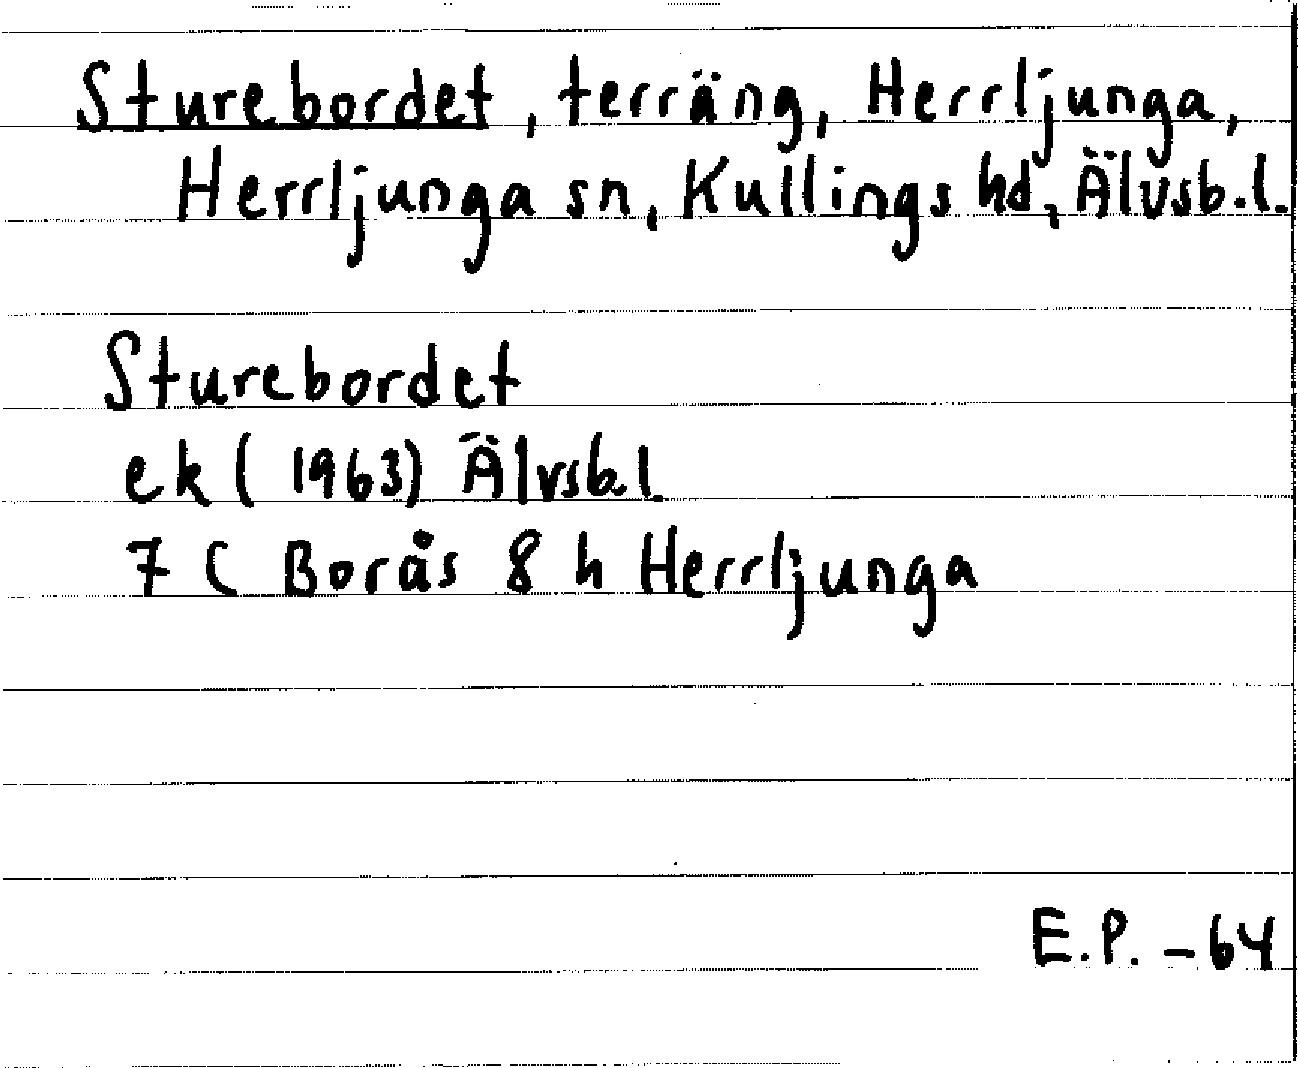 Sturebordet, terräng, Herrljunga,
Herrljunga sn, Kullings hd, Älvsb.l.
Sturebordet
ek (1963) Älvsb.l.
7 C Borås 8 h Herrljunga
E.P. -64